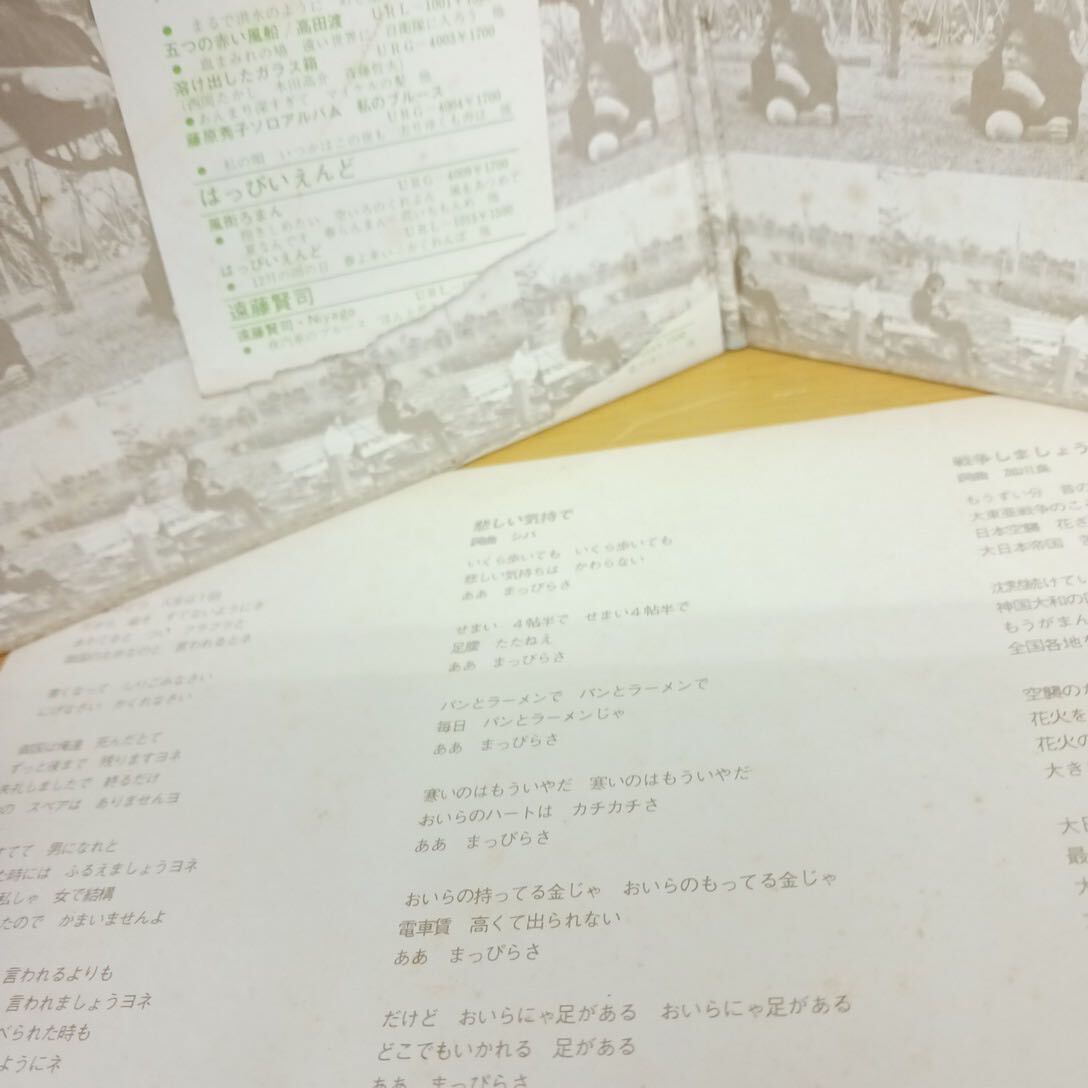 まるで洪水のように
URL-1001¥1
五つの赤い風船／高田渡
血まみれの鳩 遠い世界に 自衛隊に入ろう 他
溶け出したガラス箱
URG-4003¥1700
(西岡たかし 木田高介 斉藤哲夫)
●あんまり深すぎて マイケルの 他
藤原秀子ソロアルバム 私のブルース
URG-4004¥1700
● 私の唄 いつかはこの唄も おりゆくものは 他
はっぴいえんど
風街ろまん URG-4009¥1700
● 抱きしめたい 空いろのくれよん 風をあつめて
夏なんです 春らんまん 花いちもんめ 他
はっぴいえんど URL-1015¥1500
● 12月の雨の日 春よ来い かくれんぼ 他
遠藤賢司
遠藤賢司・Niyago URL-
● 夜汽車のブルース ほんと
寒くなって しりごみなさい
にげなさい かくれなさい
御国は俺達 死んだとて
ずっと後まで 残りますヨネ
失礼しましたで 終るだけ
の スペアは ありませんヨ
すてて 男になれと
た時には ふるえましょうヨネ
私しゃ 女で結構
たので かまいませんよ
言われるよりも
言われましょうヨネ
べられた時も
ようにネ
悲しい気持で
詞曲 シバ
いくら歩いても いくら歩いても
悲しい気持ちは かわらない
ああ まっぴらさ
せまい 4帖半で せまい4帖半で
足腰 たたねえ
ああ まっぴらさ
パンとラーメンで パンとラーメンで
毎日 パンとラーメンじゃ
ああ まっぴらさ
寒いのはもういやだ 寒いのはもういやだ
おいらのハートは カチカチさ
ああ まっぴらさ
おいらの持ってる金じゃ おいらのもってる金じゃ
電車賃 高くて出られない
ああ まっぴらさ
だけど おいらにゃ足がある おいらにゃ足がある
どこでもいかれる 足がある
ああ まっぴらさ
戦争しましょう
詞曲 加川良
もうずい分 昔の
大東亜戦争のこ
日本空襲 花さ
大日本帝国
沈黙続けてい
神国大和の
もうがまん
全国各地
空襲のか
花火を
花火の
大き
大日
最
大